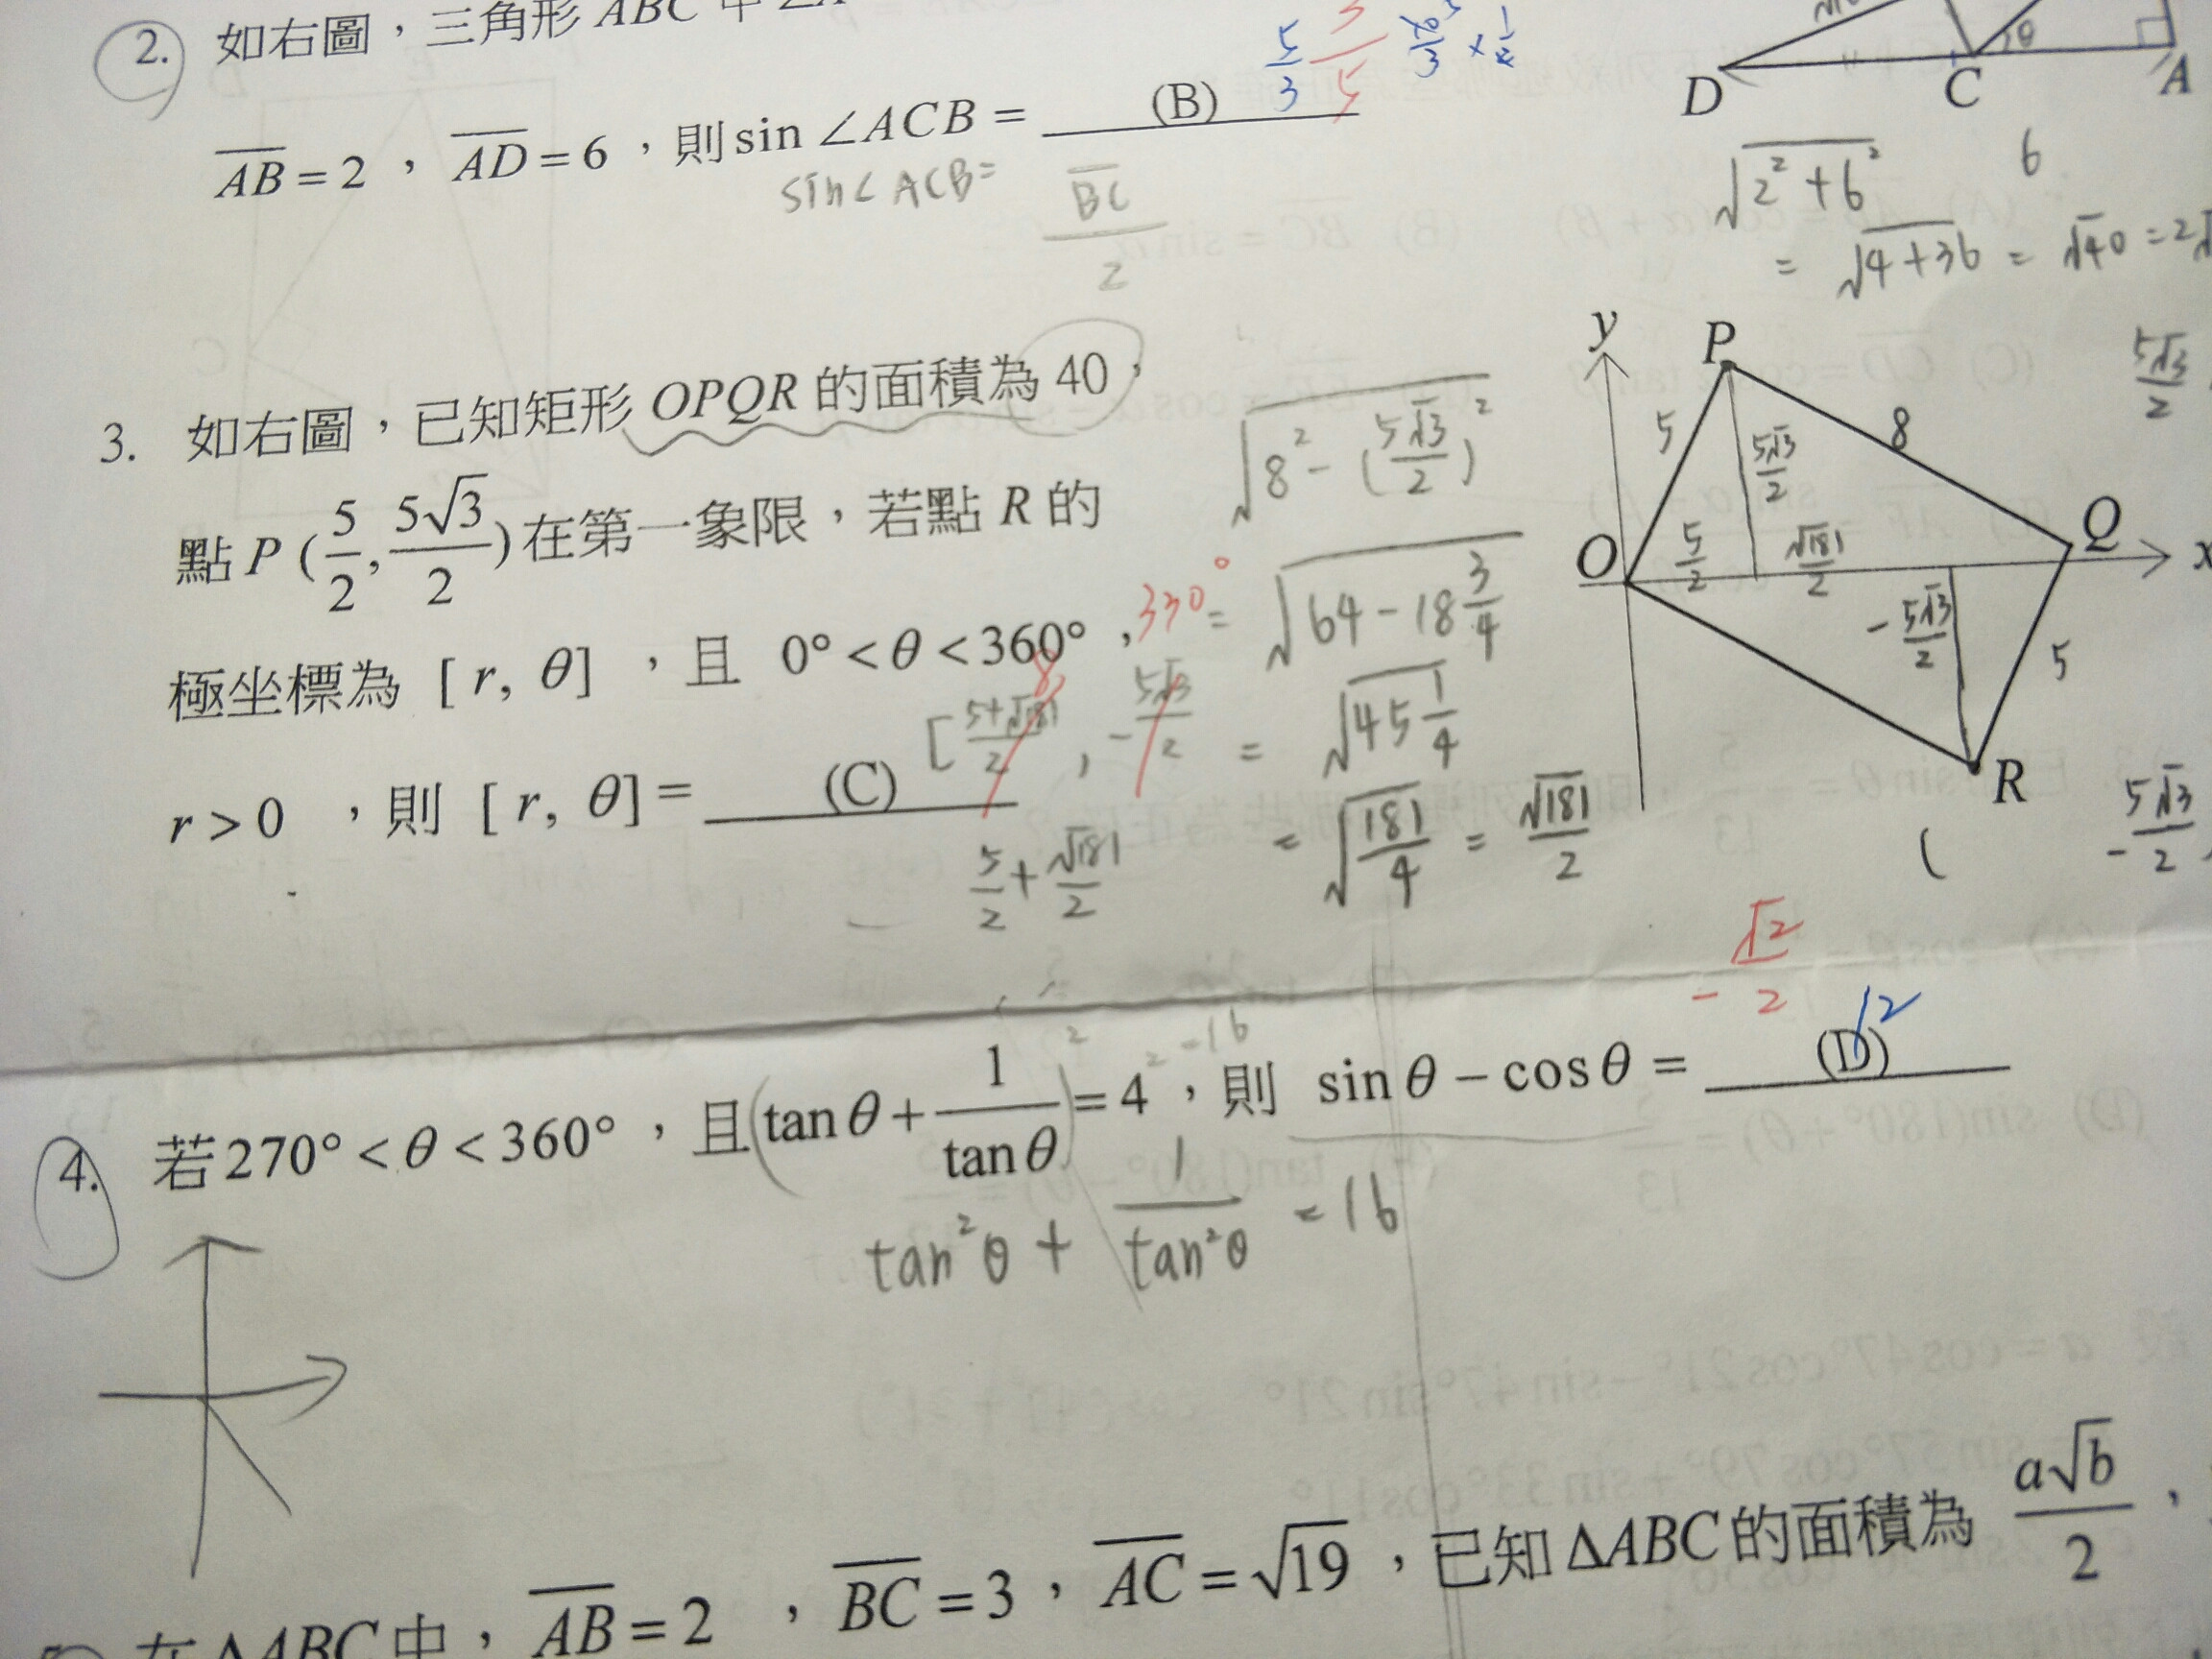 2. 如右圖，三角形 ABC 中 ∠A
5/3 3/5
AB = 2 ， AD = 6 ，則 sin ∠ACB = (B)
sin∠ACB = BC/2
D C A θ
√(2²+6²) 6
= √(4+36) = √40 = 2√
3. 如右圖，已知矩形 OPQR 的面積為 40，
點 P (5/2, 5√3/2) 在第一象限，若點 R 的
極坐標為 [ r, θ] ，且 0° < θ < 360° ，
r > 0 ，則 [ r, θ] = (C)
8, 330°
[(5+√181)/2, -5√3/2
5/2 + √181/2
√(8² - (5√3/2)²)
= √(64 - 18 3/4)
= √(45 1/4)
= √(181/4) = √181/2
y P 5 8 5√3/2
O 5/2 √181/2 Q x
-5√3/2 5
R
5√3/2
(
-5√3/2
-√2/2
12
4. 若 270° < θ < 360° ，且 (tan θ + 1/tan θ) = 4 ，則 sin θ − cos θ = (D)
² = 16
tan²θ + 1/tan²θ = 16
在 ΔABC 中， AB = 2 ， BC = 3 ， AC = √19 ，已知 ΔABC 的面積為 a√b/2 ，